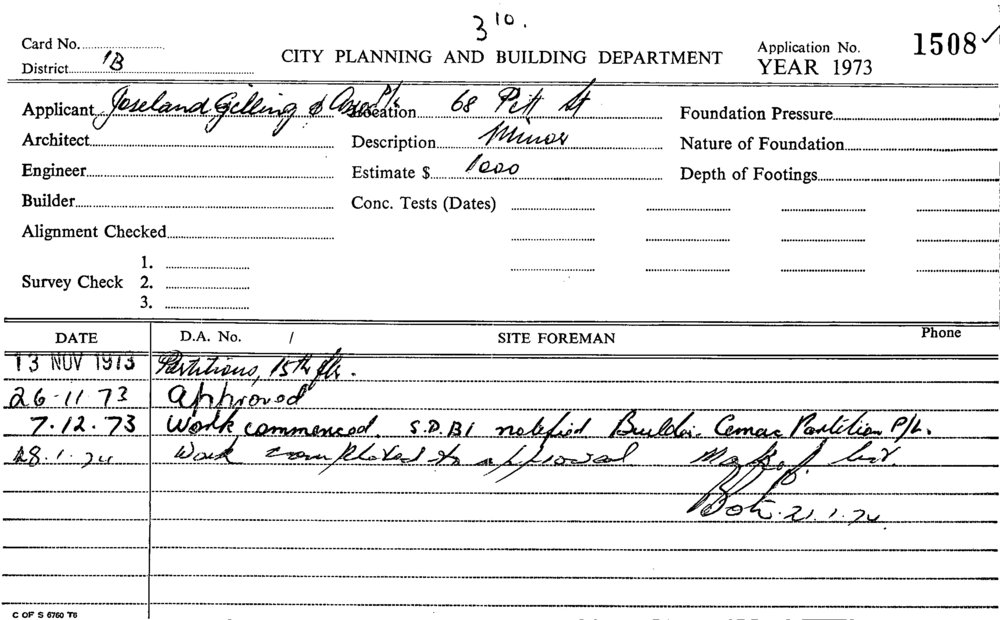 3 10.
Card No.
District 1B
CITY PLANNING AND BUILDING DEPARTMENT
Application No. 1508 ✓
YEAR 1973
Applicant Joseland Gilling & Assoc P/L Location 68 Pitt St Foundation Pressure
Architect Description Minor Nature of Foundation
Engineer Estimate $ 1000 Depth of Footings
Builder Conc. Tests (Dates)
Alignment Checked
Survey Check 1.
2.
3.
DATE D.A. No. / SITE FOREMAN Phone
13 NOV 1973 Partitions, 15th flr.
26-11-73 Approved
7.12.73 Work commenced. S.D.B1 notified Builder Cemac Partition P/L.
18.1.74 Work completed to approval
21.1.74
C OF S 6760 T6